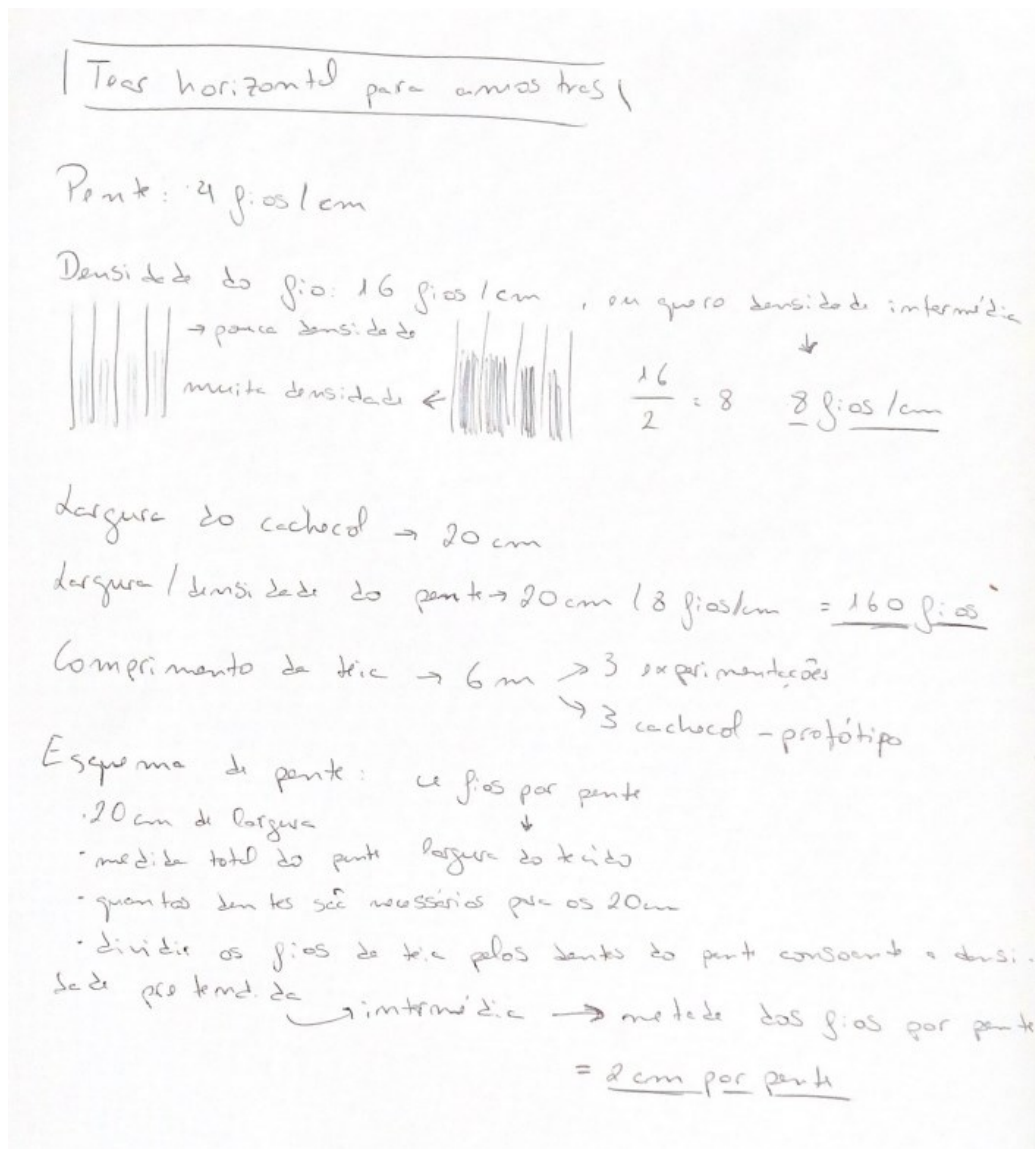 Tear horizontal para amostras
Pente: 4 fios/cm
Densidade do fio: 16 fios/cm, eu quero densidade intermédia
→ pouca densidade
↓
muita densidade ←
16/2 = 8
8 fios/cm
Largura do cachecol → 20 cm
Largura/densidade do pente → 20 cm / 8 fios/cm = 160 fios
Comprimento da teia → 6 m → 3 experimentações
↘ 3 cachecol - protótipo
Esquema de pente: fios por pente
· 20 cm de largura ↓
· medida total do pente largura do tecido
· quantos dentes são necessários para os 20cm
· dividir os fios da teia pelos dentes do pente consoante a densi-
dade pretendida → intermédia → metade dos fios por pente
= 2 cm por pente